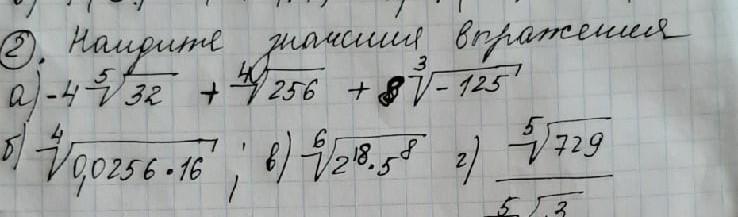 2. Найдите значения выражения
а) -4 ⁵√32 + ⁴√256 + 8 ³√-125
б) ⁴√0,0256·16 ; в) ⁶√2¹⁸·5⁸ г) ⁵√729 / ⁵√3